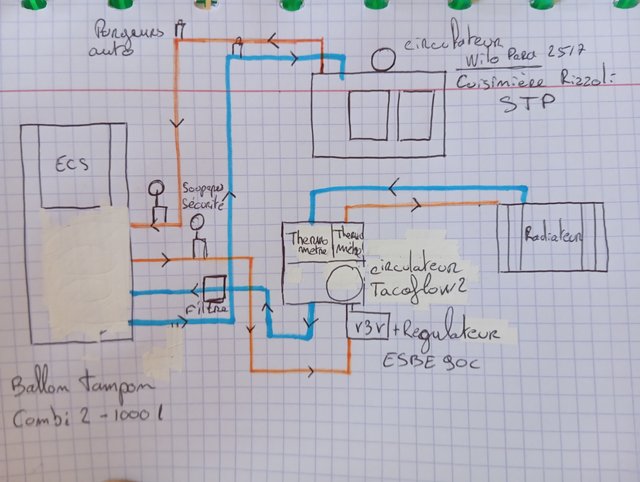 Purgeurs
auto
circulateur
Wilo Para 25/7
Cuisinière Rizzoli
STP
ECS
Soupapes
Sécurité
Thermo
mètre
Thermo
Mètre
Radiateur
circulateur
Tacoflow2
Filtre
V3V + Regulateur
ESBE 90C
Ballon tampon
Combi 2 - 1000 l